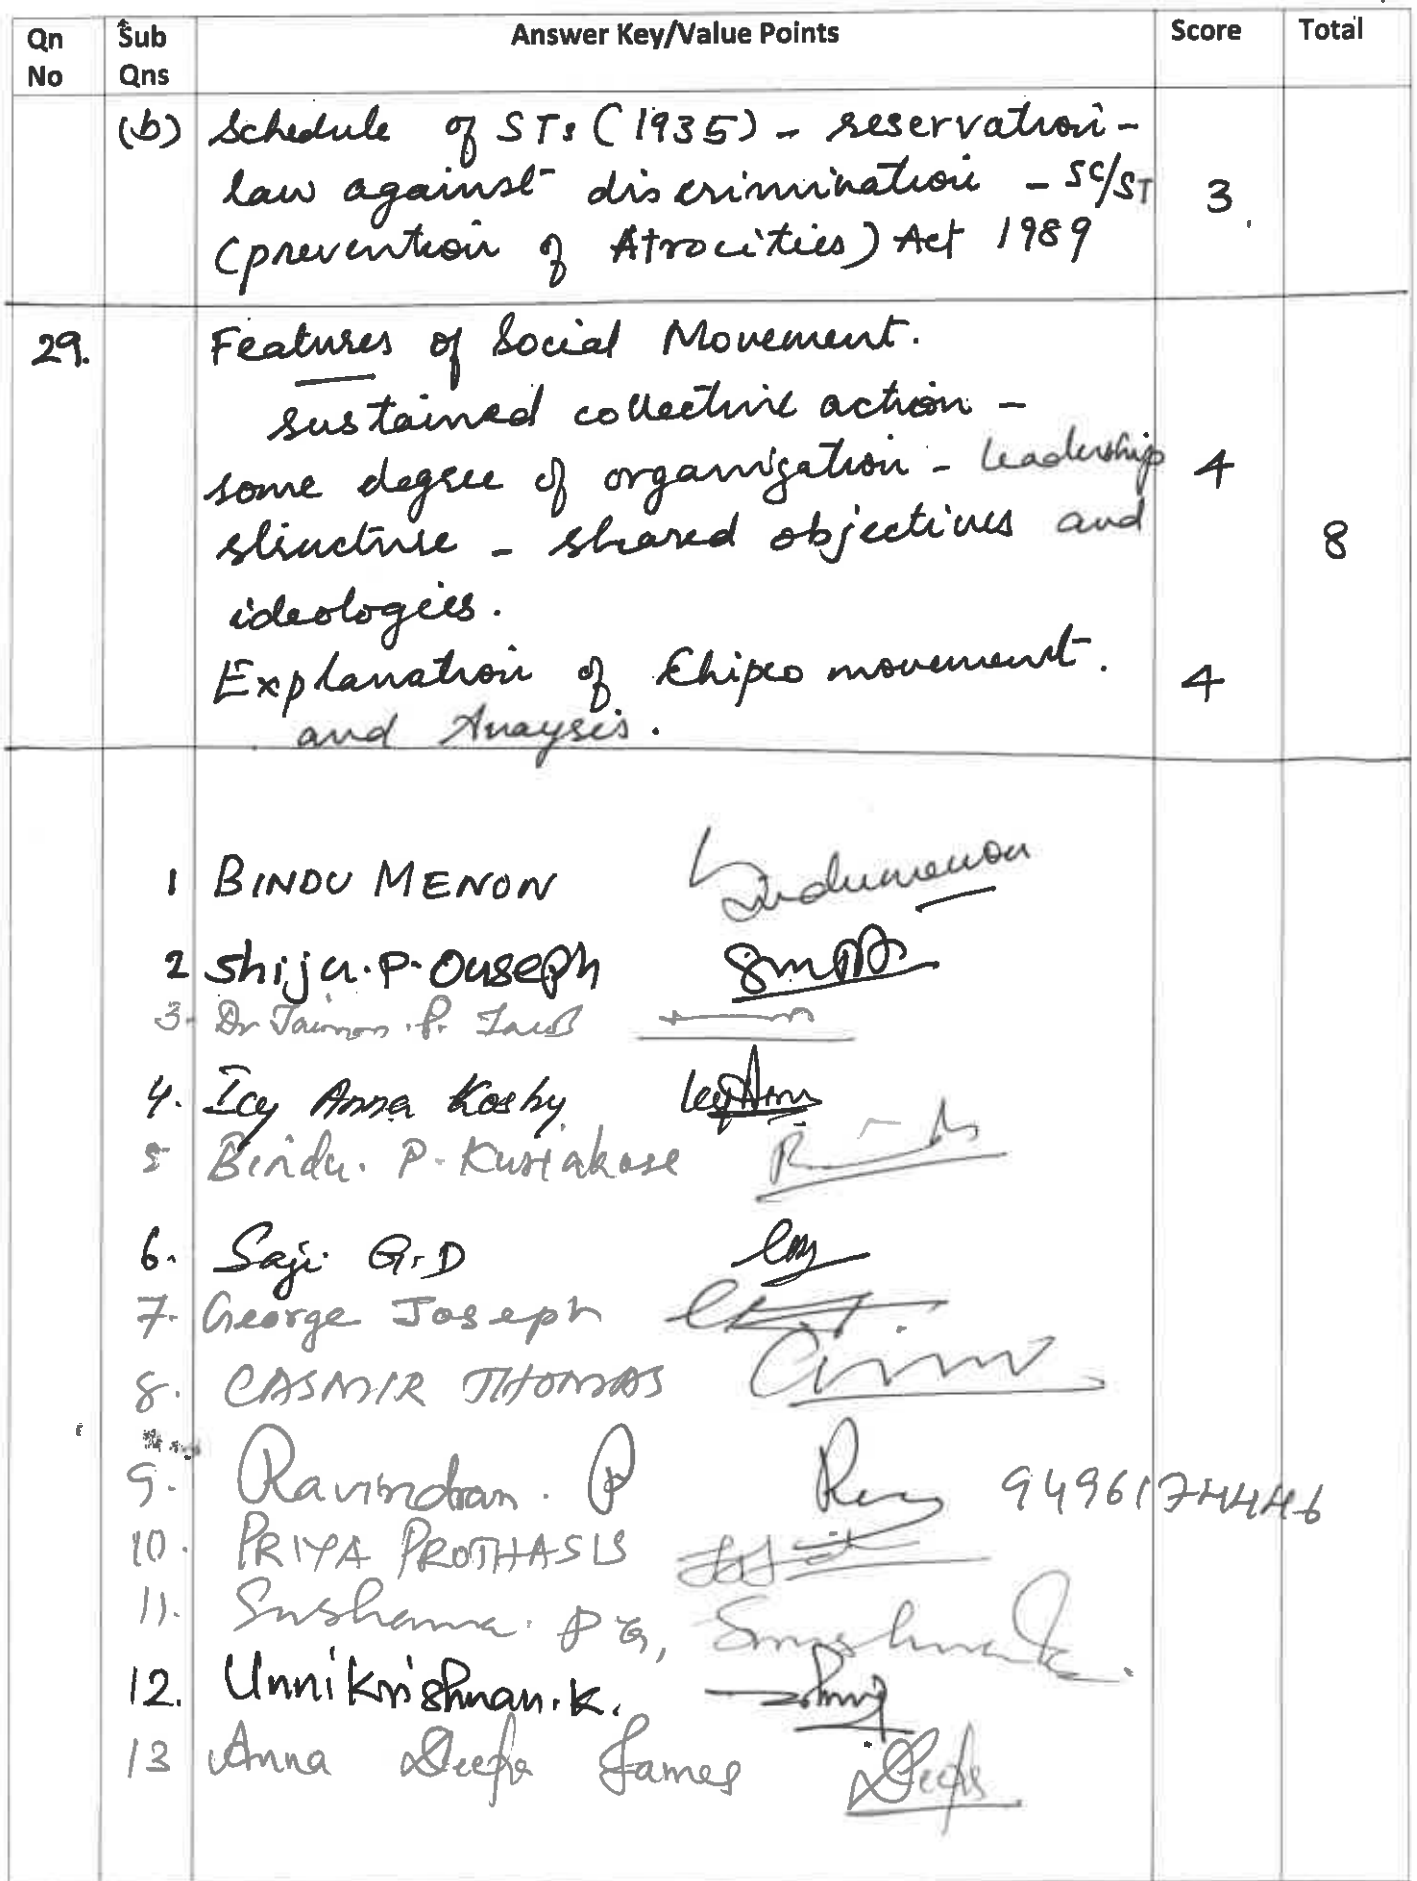 Qn No
Sub Qns
Answer Key/Value Points
Score
Total
(b) Schedule of STs (1935) - reservation -
law against discrimination - SC/ST
(prevention of Atrocities) Act 1989
3
29.
Features of Social Movement.
sustained collective action -
some degree of organization - leadership
structure - shared objectives and
ideologies.
4
8
Explanation of Chipko movement.
and Anaysis.
4
1 BINDU MENON Bindumenon
2 Shiju.P.Ouseph
3. Dr P.
4. Icy Anna Koshy
5 Bindu. P. Kuriakose
6. Saji G.D
7. George Joseph
8. CASMIR THOMAS
9. Ravindran. P 9496174446
10. PRIYA PROTHASIS
11. Sushama. P G,
12. Unnikrishnan.K.
13 Anna Deepa James Deepa